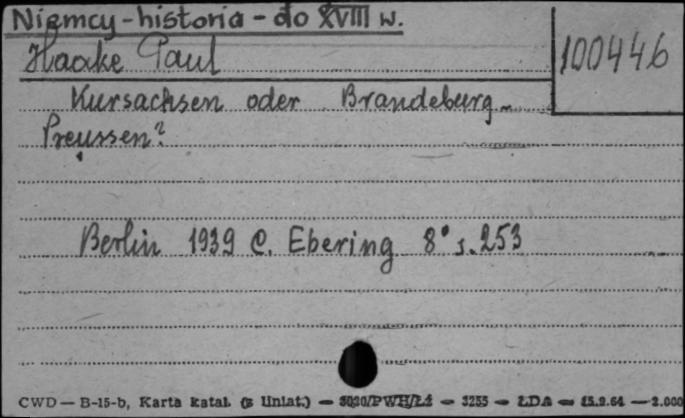 Niemcy - historia - do XVIII w.
Haake Paul
100446
Kursachsen oder Brandeburg-
Preussen?
Berlin 1939 E. Ebering 8° s. 253
CWD — B-15-b, Karta katal. (z liniat.) — 3030/PWH/Łź — 3255 — ŁDA — 15.9.64 — 2.000